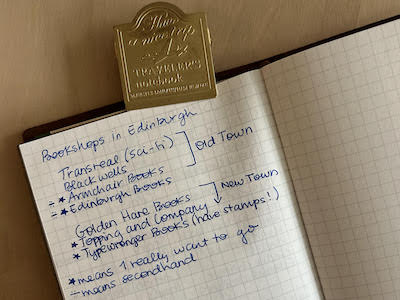 Have
a nice trip
TRAVELER'S
notebook
Bookshops in Edinburgh
Transreal (sci-fi)
Blackwells
Old Town
= * Armchair Books
= * Edinburgh Books
Golden Hare Books
New Town
* Topping and Company
* Typewronger Books (have stamps!)
* means I really want to go
= means secondhand